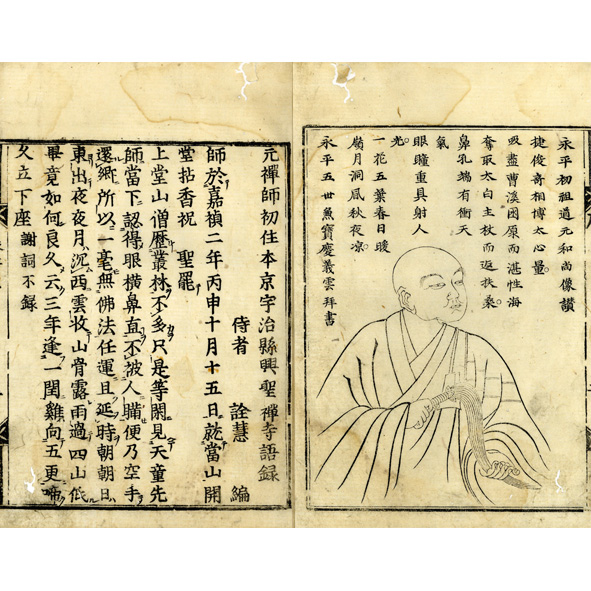 永平初祖道元和尚像讃
捷俊奇相博大心量。
吸盡曹溪困原而湛性海
奪取太白主杖而返扶桑。
鼻孔端有衝天
氣
眼瞳重具射人
光。
一花五葉春日暖
嶺月洞風秋夜凉。
永平五世寶慶義雲拜書
元禪師初住本京宇治縣興聖禪寺語録
侍者 詮慧 編
師於嘉禎二年丙申十月十五日就當山開
堂拈香祝 聖罷
上堂山僧歷叢林不多只是等閑見天童先
師當下認得眼橫鼻直不被人瞞便乃空手
還郷所以一毫無佛法任運且延時朝朝日
東出夜夜月沉西雲收山骨露雨過四山低
畢竟如何良久云三年逢一閏雞向五更啼
久立下座謝詞不録